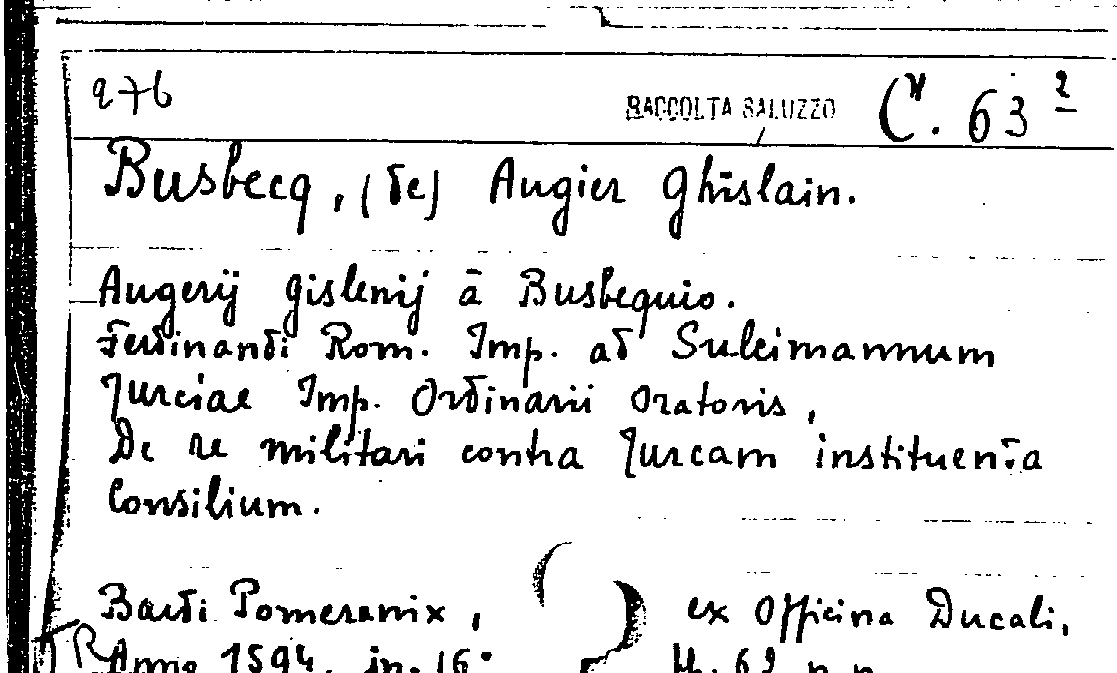 276 RACCOLTA SALUZZO C. 63 2
Busbecq, (de) Augier Ghislain.
Augerij Gislenij ā Busbequio.
Ferdinandi Rom. Imp. ad Suleimannum
Turciae Imp. Ordinarii Oratoris,
De re militari contra Turcam instituenda
Consilium.
Bardi Pomeranix, ex Officina Ducali,
Anno 1594. in-16°